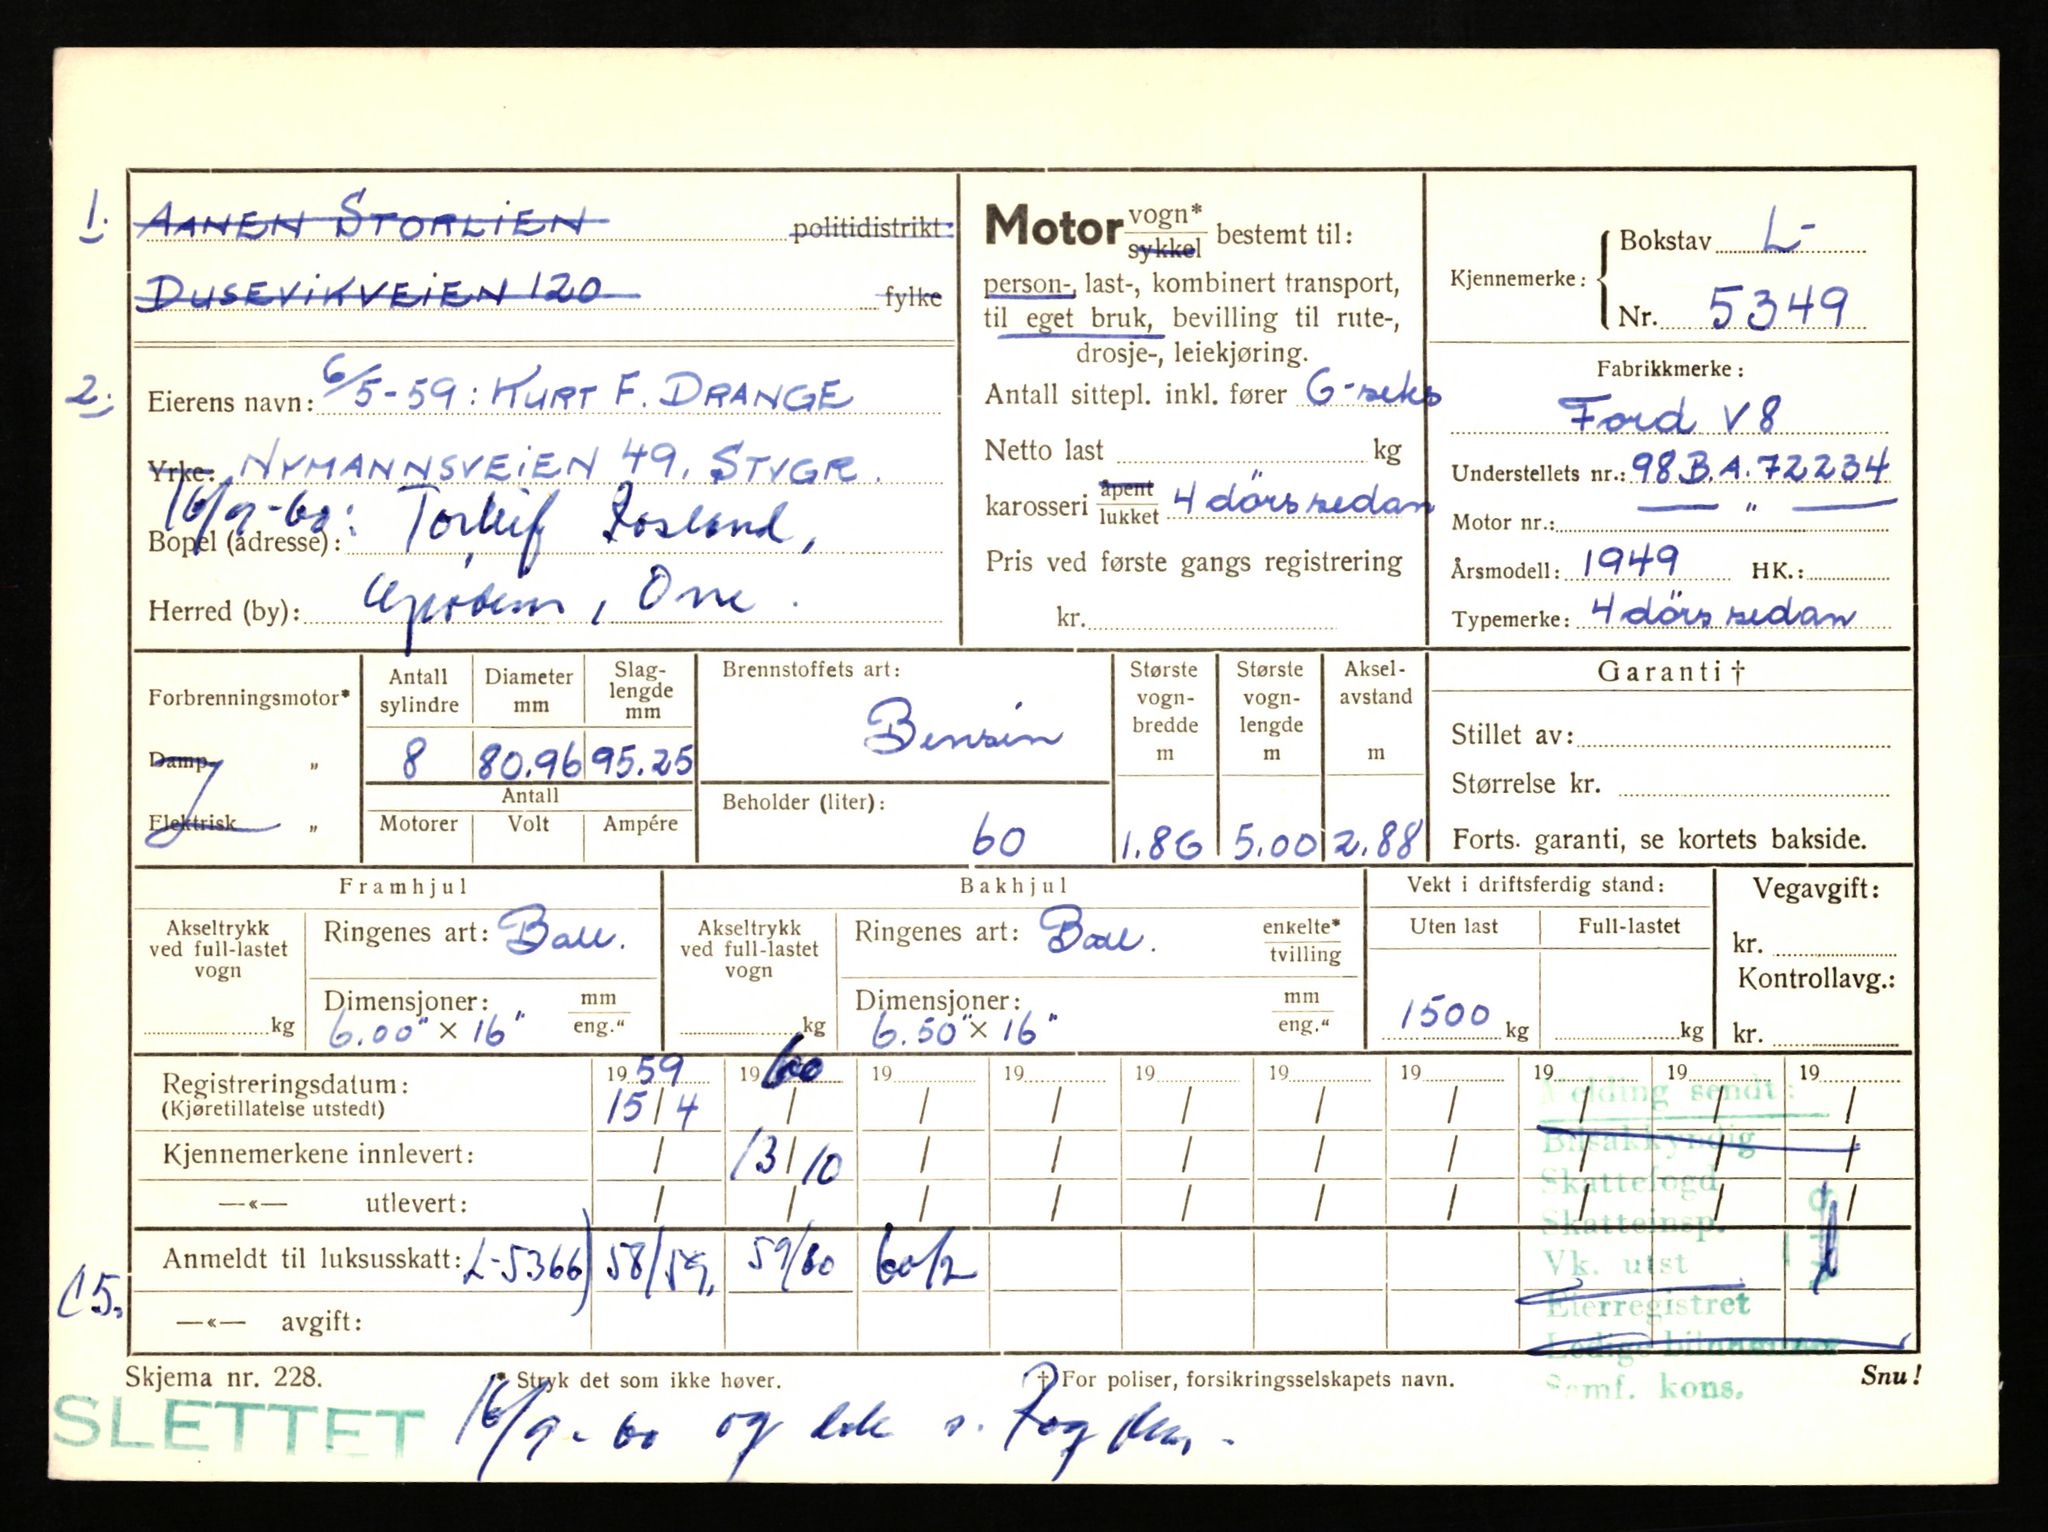 1. AANEN STORLIEN politidistrikt:
DUSEVIKVEIEN 120 fylke
2. Eierens navn: 6/5-59: KURT F. DRANGE
Yrke: NYMANNSVEIEN 49, STVGR.
16/9-60: Torleif
Bopel (adresse):
Herred (by):
Motor vogn* sykkel bestemt til:
person-, last-, kombinert transport,
til eget bruk, bevilling til rute-,
drosje-, leiekjøring.
Antall sittepl. inkl. fører 6-seks
Netto last kg
karosseri åpent lukket 4 dörs sedan
Pris ved første gangs registrering
kr.
Kjennemerke: Bokstav L-
Nr. 5349
Fabrikkmerke:
Ford V8
Understellets nr.: 98 B.A. 72234
Motor nr.: — " —
Årsmodell: 1949 HK.:
Typemerke: 4 dörs sedan
Forbrenningsmotor*
Damp- "
Elektrisk "
Antall sylindre Diameter mm Slag-lengde mm
8 80.96 95.25
Antall
Motorer Volt Ampére
Brennstoffets art:
Bensin
Beholder (liter):
60
Største vogn-bredde m Største vogn-lengde m Aksel-avstand m
1.86 5.00 2.88
Garanti †
Stillet av:
Størrelse kr.
Forts. garanti, se kortets bakside.
Framhjul
Akseltrykk ved full-lastet vogn
kg
Ringenes art: Ball.
Dimensjoner: mm eng."
6.00" × 16"
Bakhjul
Akseltrykk ved full-lastet vogn
kg
Ringenes art: Ball. enkelte* tvilling
Dimensjoner: mm eng."
6.50" × 16"
Vekt i driftsferdig stand:
Uten last Full-lastet
1500 kg kg
Vegavgift:
kr.
Kontrollavg.:
kr.
Registreringsdatum: 1959 1960 19 19 19 19 19 19 19 19
(Kjøretillatelse utstedt) 15/4 / / / / / / / / /
Kjennemerkene innlevert: / 13/10 / / / / / / / /
—«— utlevert: / / / / / / / / / /
Anmeldt til luksusskatt: L-5366) 58/59. 59/60 60/2
15.
—«— avgift:
Melding sendt:
Bilsakkyndig
Skattefogd
Skatteinsp.
Vk. utst
Eierregistret
Ledige bilnummer
Samf. kons.
Skjema nr. 228. * Stryk det som ikke høver. † For poliser, forsikringsselskapets navn. Snu!
SLETTET 16/9-60 og